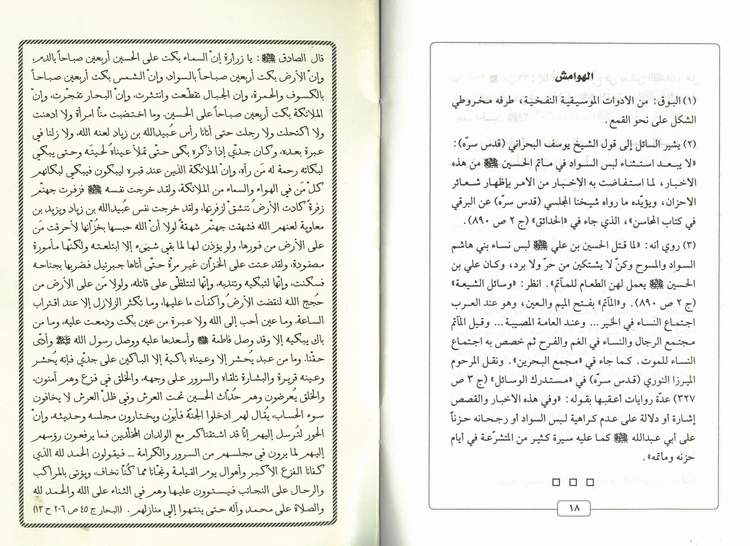 الهوامش
(١) البوق: من الادوات الموسيقية النفخية، طرفه مخروطي
الشكل على نحو القمع.
(٢) يشير السائل إلى قول الشيخ يوسف البحراني (قدس سره):
«لا يبعد استثناء لبس السواد في مآتم الحسين ﷺ من هذه
الاخبار، لما استفاضت به الاخبار من الامر بإظهار شعائر
الاحزان، ويؤيّده ما رواه شيخنا المجلسي (قدس سرّه) عن البرقي
في كتاب المحاسن»، الذي جاء في «الحدائق» (ج ٢ ص ٨٩٠).
(٣) روي انه: «لما قتل الحسين بن علي ﷺ لبس نساء بني هاشم
السواد والمسوح وكنّ لا يشتكين من حرّ ولا برد، وكان علي بن
الحسين ﷺ يعمل لهن الطعام للمآتم». انظر: «وسائل الشيعة»
(ج ٢ ص ٨٩٠). و«المآتم» بفتح الميم والعين، وهو عند العرب
اجتماع النساء في الخير... وعند العامة المصيبة... وقيل المآتم
مجتمع الرجال والنساء في الغم والفرح ثم خصص به اجتماع
النساء للموت. كما جاء في «مجمع البحرين». ونقل المرحوم
الميرزا النوري (قدس سرّه) في «مستدرك الوسائل» (ج ٣ ص
٣٢٧) عدّة روايات أعقبها بقوله: «وفي هذه الاخبار والقصص
إشارة أو دلالة على عدم كراهية لبس السواد أو رجحانه حزناً
على أبي عبدالله ﷺ كما عليه سيرة كثير من المتشرّعة في أيام
حزنه ومآتمه».
١٨
قال الصادق ﷺ: يا زرارة إنّ السماء بكت على الحسين أربعين صباحاً بالدم،
وإنّ الأرض بكت أربعين صباحاً بالسواد، وإنّ الشمس بكت أربعين صباحاً
بالكسوف والحمرة، وإن الجبال تقطّعت وانتثرت، وإن البحار تفجّرت، وإنّ
الملائكة بكت أربعين صباحاً على الحسين. وما اختضبت منّا امرأة ولا ادهنت
ولا اكتحلت ولا رجلت حتى أتانا رأس عُبيدالله بن زياد لعنه الله، ولا زلنا في
عبرة بعده، وكان جدّي إذا ذكره بكى حتّى تملأ عيناه لحيته وحتى يبكي
لبكائه رحمة له من رآه. وإنّ الملائكة الذين عند قبره ليبكون فيبكي لبكائهم
كلّ مَن في الهواء والسماء من الملائكة، ولقد خرجت نفسه ﷺ فزفرت جهنّم
زفرةً كادت الأرض تنشق لزفرتها، ولقد خرجت نفس عُبيدالله بن زياد ويزيد بن
معاوية لعنهم الله فشهقت جهنم شهقةً لولا أنّ الله حبسها بخُزّانها لأحرقت مَن
على الأرض من فورها، ولو يؤذن لها لما بقي شيء إلا ابتلعته ولكنّها مأمورة
مصفودة، ولقد عتت على الخزّان غير مرّة حتّى أتاها جبرئيل فضربها بجناحه
فسكنت، وإنّها لتبكيه وتندبه. وإنّها لتتلظّى على قاتله، ولولا مَن على الأرض من
حُجج الله لنقضت الأرض وأكفأت ما عليها، وما تكثر الزلازل إلا عند اقتراب
الساعة. وما عين أحب إلى الله ولا عبرة من عين بكت ودمعت عليه، وما من
باك يبكيه إلا وقد وصل فاطمة ﷺ وأسعدها عليه ووصل رسول الله ﷺ وأدّى
حقّنا. وما من عبد يُحشر إلا وعيناه باكية إلا الباكين على جدّي فإنه يُحشر
وعينه قريرة والبشارة تلقاه والسرور على وجهه، والخلق في فزع وهم آمنون،
والخلق يُعرضون وهم حُدّاث الحسين تحت العرش وفي ظلّ العرش لا يخافون
سوء الحساب، يُقال لهم ادخلوا الجنّة فأبون ويختارون مجلسه وحديثه، وإنّ
الحور لتُرسل إليهم إنّا قد اشتقناكم مع الولدان المخلّدين فما يرفعون رؤسهم
إليهم لما يرون في مجلسهم من السرور والكرامة ـ فيقولون الحمد لله الذي
كفانا الفزع الأكبر وأهوال يوم القيامة ونجّانا مما كنّا نخاف، ويؤتى بالمراكب
والرحال على النجائب فيستوون عليها وهم في الثناء على الله والحمد لله
والصلاة على محمد وآله حتى ينتهوا إلى منازلهم. (البحار ج ٤٥ ص ٢٠٦ ح ١٣)